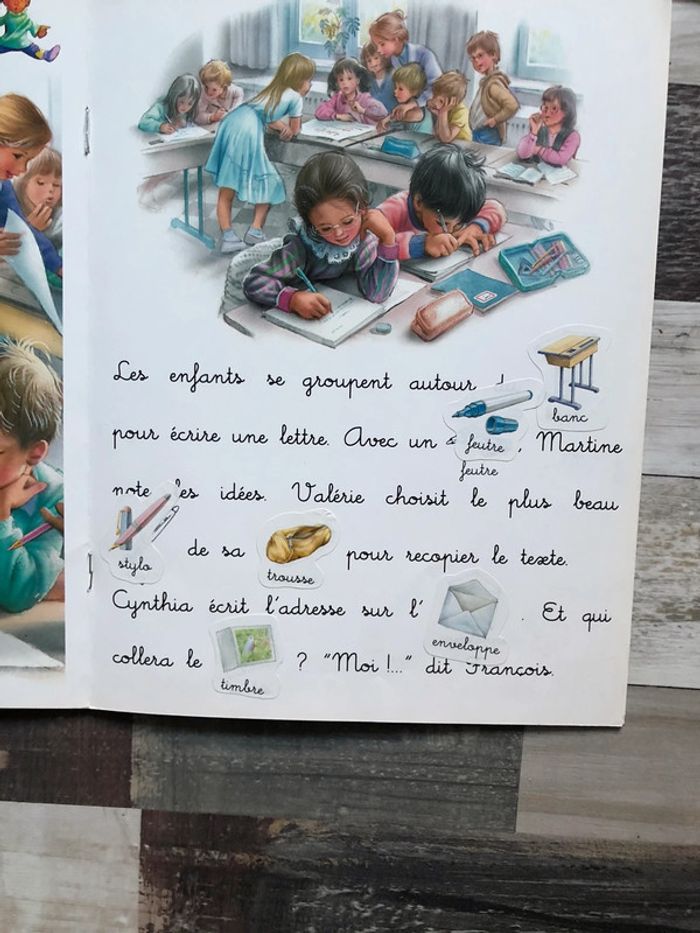 Les enfants se groupent autour d banc
pour écrire une lettre. Avec un feutre, Martine
feutre
note les idées. Valérie choisit le plus beau
stylo de sa trousse pour recopier le texte.
Cynthia écrit l'adresse sur l' enveloppe. Et qui
collera le timbre ? "Moi !..." dit François.